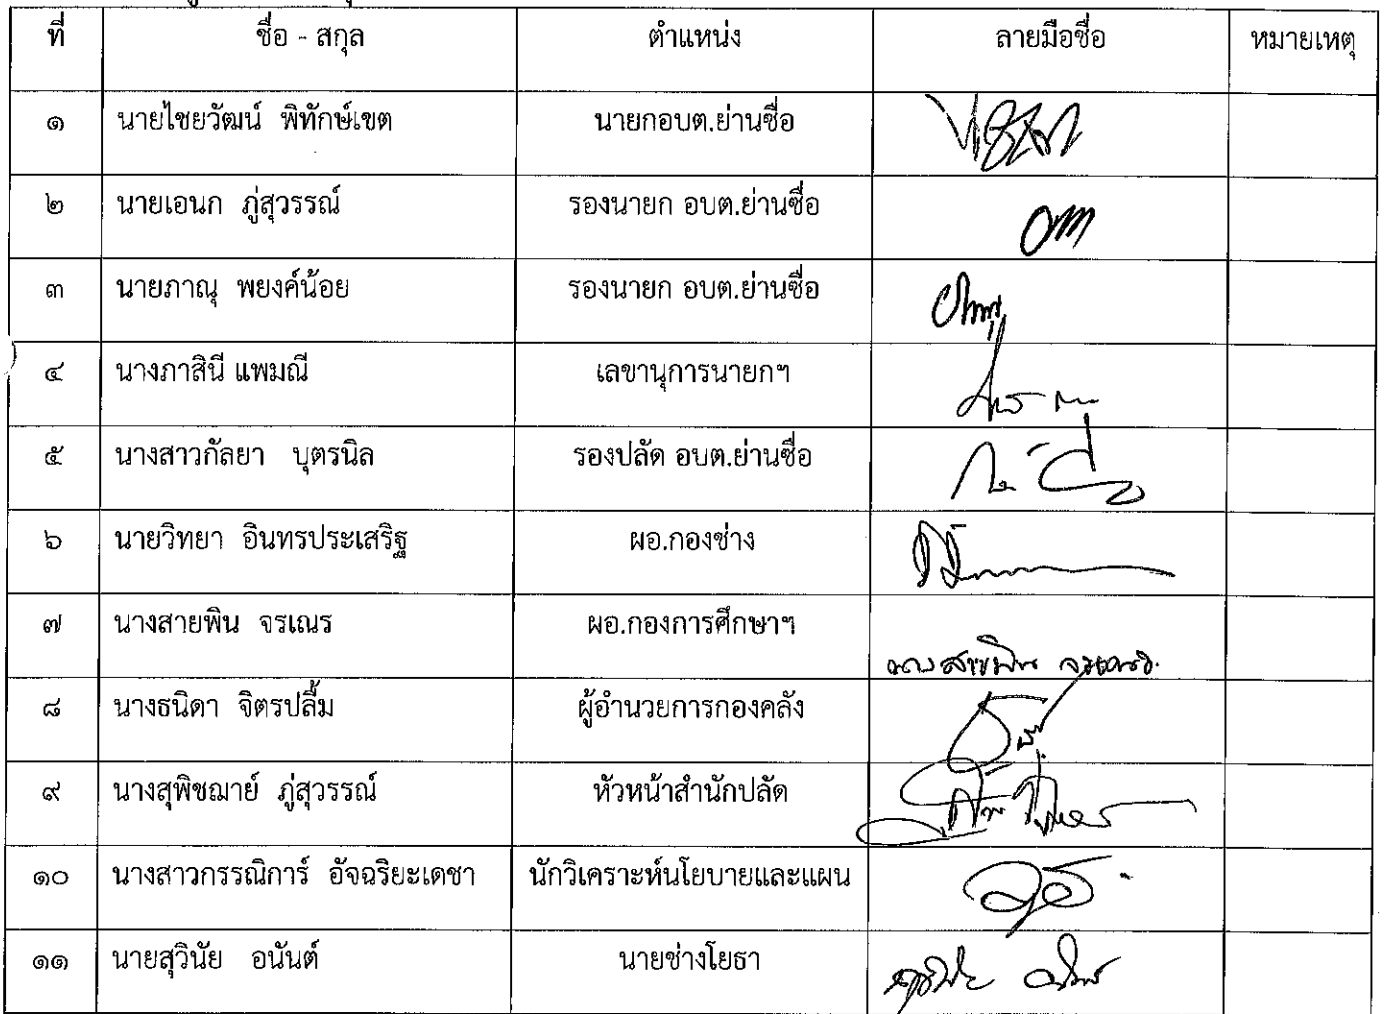 ที่ ชื่อ - สกุล ตำแหน่ง ลายมือชื่อ หมายเหตุ
๑ นายไชยวัฒน์ พิทักษ์เขต นายกอบต.ย่านซื่อ
๒ นายเอนก ภู่สุวรรณ์ รองนายก อบต.ย่านซื่อ
๓ นายภาณุ พยงค์น้อย รองนายก อบต.ย่านซื่อ
๔ นางภาสินี แพมณี เลขานุการนายกฯ
๕ นางสาวกัลยา บุตรนิล รองปลัด อบต.ย่านซื่อ
๖ นายวิทยา อินทรประเสริฐ ผอ.กองช่าง
๗ นางสายพิน จรเณร ผอ.กองการศึกษาฯ นางสายพิน จรเณร
๘ นางธนิดา จิตรปลื้ม ผู้อำนวยการกองคลัง
๙ นางสุพิชฌาย์ ภู่สุวรรณ์ หัวหน้าสำนักปลัด
๑๐ นางสาวกรรณิการ์ อัจฉริยะเดชา นักวิเคราะห์นโยบายและแผน
๑๑ นายสุวินัย อนันต์ นายช่างโยธา สุวินัย อนันต์